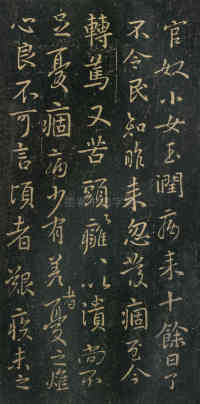 官奴小女玉潤病来十餘日了
不令民知昨来忽發痼至今
轉篤又苦頭癰以潰尚不
足憂痼病少有差者憂之燋
心良不可言頃者艱疾未之